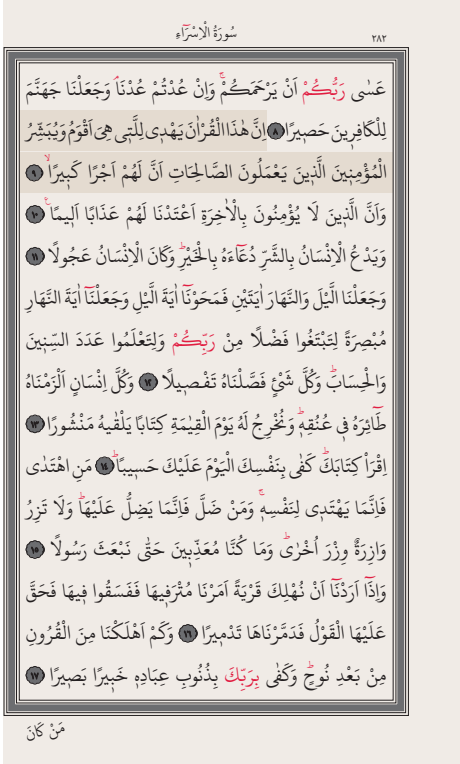 سُورَةُ الْاِسْرَٓاءِ ٢٨٢
عَسٰى رَبُّكُمْ اَنْ يَرْحَمَكُمْۚ وَاِنْ عُدْتُمْ عُدْنَاۢ وَجَعَلْنَا جَهَنَّمَ
لِلْكَافِر۪ينَ حَص۪يرًا ٨ اِنَّ هٰذَا الْقُرْاٰنَ يَهْد۪ي لِلَّت۪ي هِيَ اَقْوَمُ وَيُبَشِّرُ
الْمُؤْمِن۪ينَ الَّذ۪ينَ يَعْمَلُونَ الصَّالِحَاتِ اَنَّ لَهُمْ اَجْرًا كَب۪يرًاۙ ٩
وَاَنَّ الَّذ۪ينَ لَا يُؤْمِنُونَ بِالْاٰخِرَةِ اَعْتَدْنَا لَهُمْ عَذَابًا اَل۪يمًا۟ ١٠
وَيَدْعُ الْاِنْسَانُ بِالشَّرِّ دُعَٓاءَهُ بِالْخَيْرِۜ وَكَانَ الْاِنْسَانُ عَجُولًا ١١
وَجَعَلْنَا الَّيْلَ وَالنَّهَارَ اٰيَتَيْنِ فَمَحَوْنَٓا اٰيَةَ الَّيْلِ وَجَعَلْنَٓا اٰيَةَ النَّهَارِ
مُبْصِرَةً لِتَبْتَغُوا فَضْلًا مِنْ رَبِّكُمْ وَلِتَعْلَمُوا عَدَدَ السِّن۪ينَ
وَالْحِسَابَۜ وَكُلَّ شَيْءٍ فَصَّلْنَاهُ تَفْص۪يلًا ١٢ وَكُلَّ اِنْسَانٍ اَلْزَمْنَاهُ
طَٓائِرَهُ ف۪ي عُنُقِه۪ۜ وَنُخْرِجُ لَهُ يَوْمَ الْقِيٰمَةِ كِتَابًا يَلْقٰيهُ مَنْشُورًا ١٣
اِقْرَأْ كِتَابَكَۜ كَفٰى بِنَفْسِكَ الْيَوْمَ عَلَيْكَ حَس۪يبًاۜ ١٤ مَنِ اهْتَدٰى
فَاِنَّمَا يَهْتَد۪ي لِنَفْسِه۪ۚ وَمَنْ ضَلَّ فَاِنَّمَا يَضِلُّ عَلَيْهَاۜ وَلَا تَزِرُ
وَازِرَةٌ وِزْرَ اُخْرٰىۜ وَمَا كُنَّا مُعَذِّب۪ينَ حَتّٰى نَبْعَثَ رَسُولًا ١٥
وَاِذَٓا اَرَدْنَٓا اَنْ نُهْلِكَ قَرْيَةً اَمَرْنَا مُتْرَف۪يهَا فَفَسَقُوا ف۪يهَا فَحَقَّ
عَلَيْهَا الْقَوْلُ فَدَمَّرْنَاهَا تَدْم۪يرًا ١٦ وَكَمْ اَهْلَكْنَا مِنَ الْقُرُونِ
مِنْ بَعْدِ نُوحٍۜ وَكَفٰى بِرَبِّكَ بِذُنُوبِ عِبَادِه۪ خَب۪يرًا بَص۪يرًا ١٧
مَنْ كَانَ